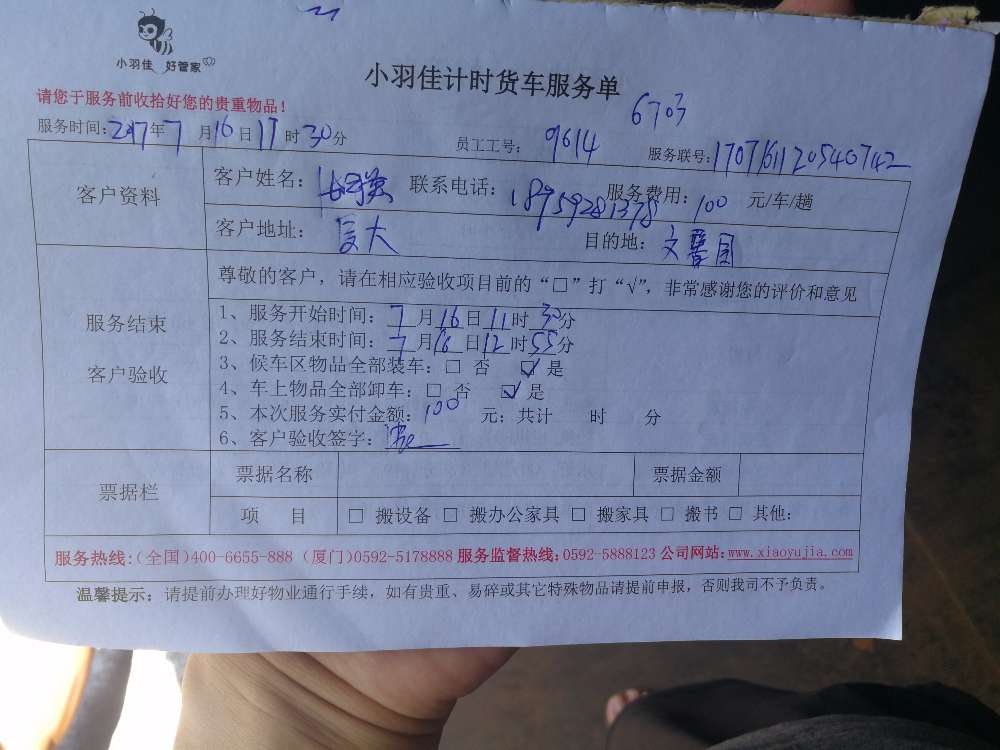 小羽佳 好管家
小羽佳计时货车服务单
6703
请您于服务前收拾好您的贵重物品！
服务时间：2017年7月16日11时30分 员工工号：9614 服务联号：1707161120540742
客户资料
客户姓名： 联系电话：18959281378 服务费用：100元/车/趟
客户地址：厦大 目的地：文馨园
服务结束
客户验收
尊敬的客户，请在相应验收项目前的“□”打“√”，非常感谢您的评价和意见
1、服务开始时间：7月16日11时30分
2、服务结束时间：7月16日12时55分
3、候车区物品全部装车：□ 否 ☑ 是
4、车上物品全部卸车：□ 否 ☑ 是
5、本次服务实付金额：100 元；共计 时 分
6、客户验收签字：
票据栏
票据名称 票据金额
项 目 □ 搬设备 □ 搬办公家具 □ 搬家具 □ 搬书 □ 其他：
服务热线：（全国）400-6655-888（厦门）0592-5178888 服务监督热线：0592-5888123 公司网站：www.xiaoyujia.com
温馨提示：请提前办理好物业通行手续，如有贵重、易碎或其它特殊物品请提前申报，否则我司不予负责。